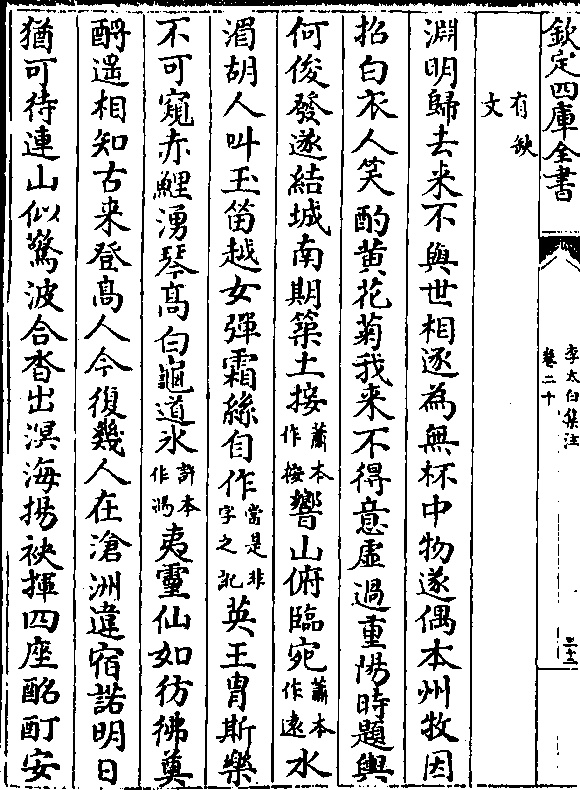 欽定四庫全書
李太白集注
卷二十
有缺
文
淵明歸去来不與世相逐為無杯中物遂偶本州牧因
招白衣人笑酌黄花菊我来不得意虚過重陽時題輿
何俊發遂結城南期築土按蕭本作接響山俯臨宛蕭本作遠水
湄胡人叫玉笛越女彈霜絲自作當是非字之訛英王胄斯樂
不可窺赤鯉湧琴髙白龜道氷許本作馮夷靈仙如彷彿奠
酹遥相知古来登髙人今復幾人在滄洲違宿諾明日
猶可待連山似驚波合沓出溟海揚袂揮四座酩酊安